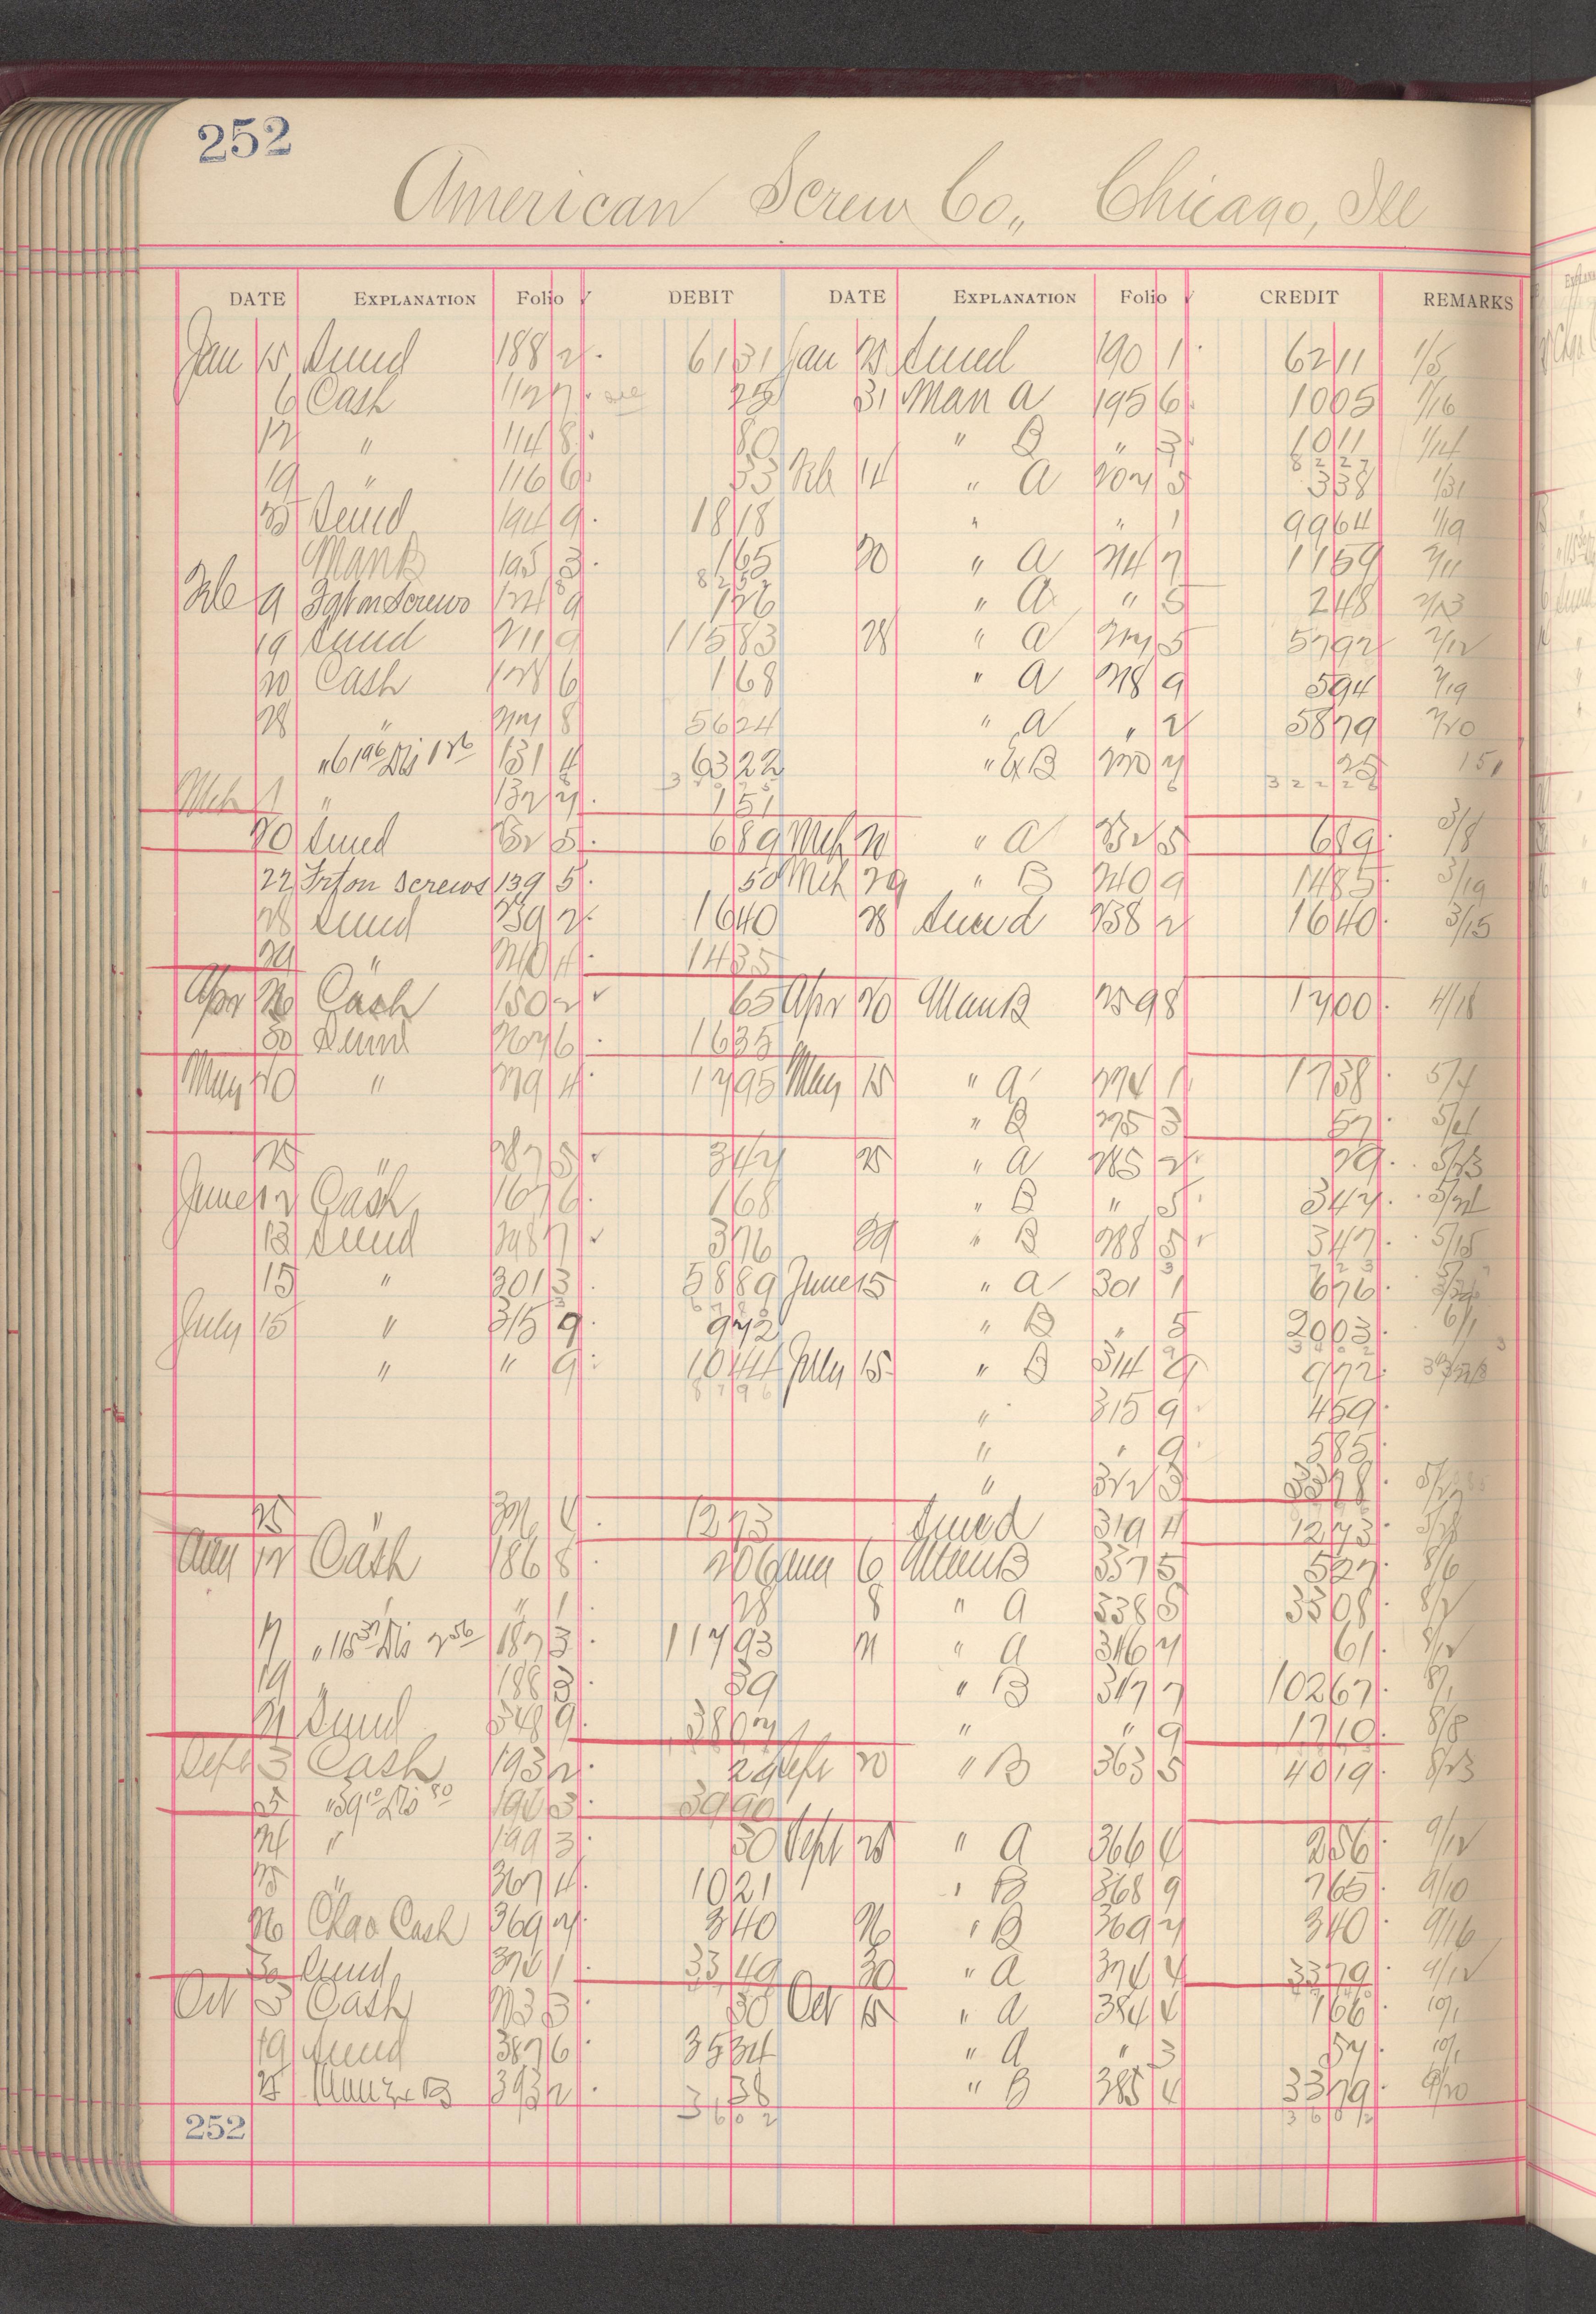 252
American Screw Co,, Chicago, Ill
DATE EXPLANATION Folio √ DEBIT DATE EXPLANATION Folio √ CREDIT REMARKS
Jan 15 Sund 188 2 6131 Jan 25 Sund 190 1 6211 1/5
6 Cash 112 7 25 31 Man A 195 6 1005 1/16
12 " 114 8 80 " B " 3 1011 1/14
8227
19 " 116 6 33 Feb 14 " A 207 5 338 1/31
25 Sund 194 9 1818 " " 1 9964 1/19
Man B 195 3 165 20 " A 214 7 1159 2/11
8252
Feb 9 Frt on Screws 124 9 126 " A " 5 248 2/13
19 Sund 211 9 11583 28 " A 217 5 5792 2/12
20 Cash 128 6 168 " A 218 9 594 2/19
28 " 8 5624 " A " 2 5879 2/20
" 6196 Dis 126 131 4 6322 " B 220 7 25 151
Mch 1 " 132 7 151
20 Sund 232 5 689 Mch 20 " A 232 5 689 3/8
22 Frt on Screws 139 5 50 Mch 29 " B 240 9 1485 3/19
28 Sund 239 2 1640 28 Sund 238 2 1640 3/15
29 " 240 4 1435
Apr 26 Cash 150 2 65 Apr 20 Man B 259 8 1700 4/18
30 Sund 267 6 1635
May 20 " 279 4 1795 May 15 " A 274 1 1738 5/7
" B 275 3 57 5/4
25 " 287 5 347 25 " A 285 2 29 5/23
June 12 Cash 167 6 168 " B " 5 347 5/21
13 Sund 298 7 376 29 " B 288 5 347 5/15
15 " 301 3 5889 June 15 " A 301 1 676
July 15 " 315 9 972 " B " 5 2003 6/1
" " 9 1044 July 15 " B 314 9 972
8796
" 315 9 459
" " 9 585
" 322 3 3378
25 " 4 1273 Sund 319 4 1273
Aug 12 Cash 186 8 206 Aug 6 Man B 337 5 527 8/6
" " 1 28 8 " A 338 5 3308 8/2
17 " 115 Dis 187 3 11793 21 " A 346 7 61 8/12
19 " 188 3 59 " B 347 7 10267 8/1
21 Sund 348 9 3807 " " 9 1710 8/8
Sept 3 Cash 193 2 29 Sept 20 " B 363 5 4019 8/23
5 " 39 Dis 80 3 3990
24 " 199 3 30 Sept 25 " A 366 4 256 9/12
25 " 367 4 1021 " B 368 9 765 9/10
26 Chgo Cash 369 7 340 26 " B 369 7 340 9/16
30 Sund 374 1 3349 30 " A 374 4 3379 9/12
Oct 3 Cash 3 30 Oct 15 " A 384 4 166 10/1
19 Sund 387 6 3534 " A " 3 57 10/1
25 Man B 393 2 38 " B 385 4 3379 9/20
3602 3602
252